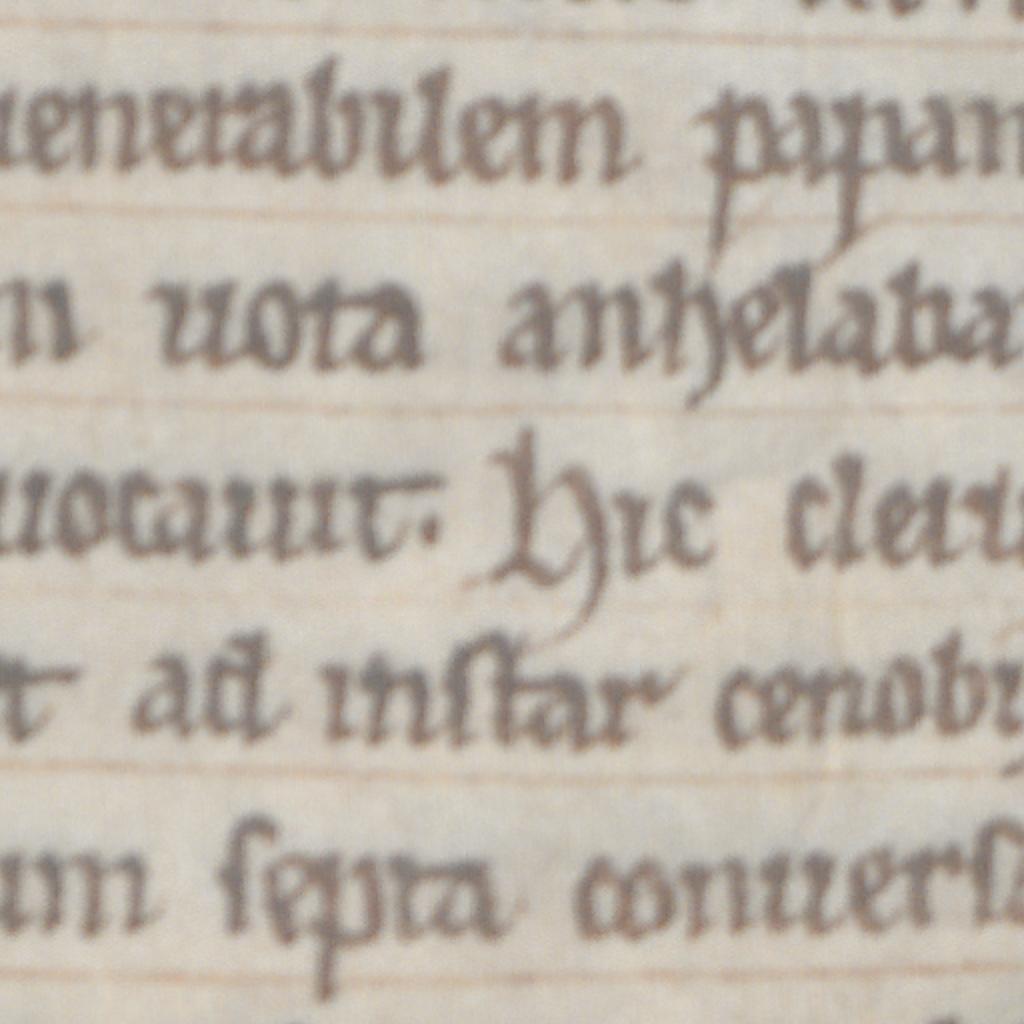 uenerabilem papam
uota anhelaba
uocauit. Hic cleri
t ad instar cenobi
um septa conuersa